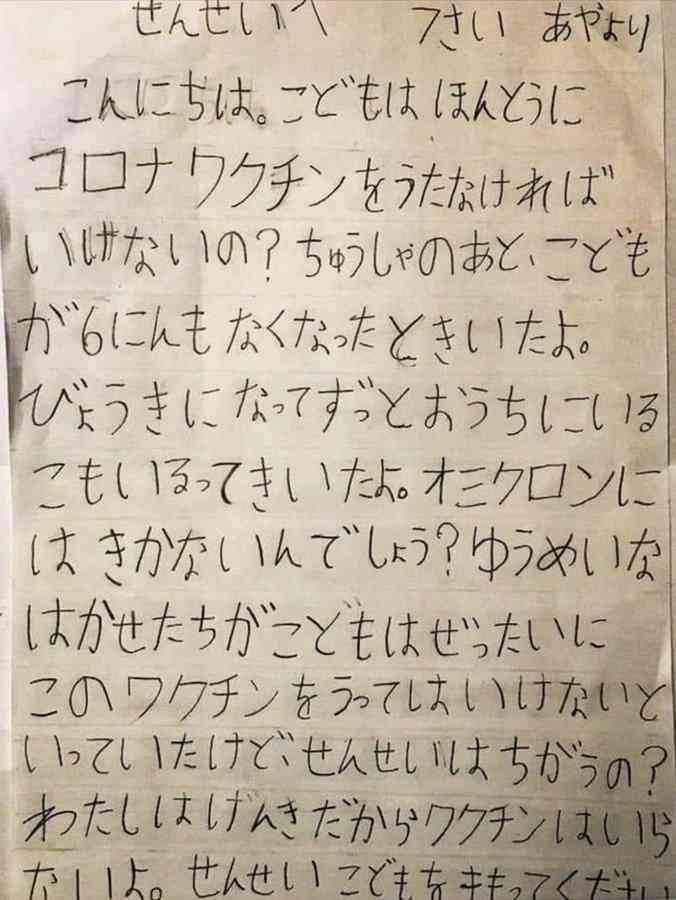 せんせいへ 7さい あやより
こんにちは。こどもは ほんとうに
コロナ ワクチンをうたなければ
いけないの？ちゅうしゃのあと、こども
が6にんも なくなったときいたよ。
びょうきに なってずっとおうちにいる
こもいるってきいたよ。オミクロンに
は きかないんでしょう？ゆうめいな
はかせたちがこどもはぜったいに
このワクチンをうってはいけないと
いっていたけど、せんせいはちがうの？
わたしはげんきだからワクチンはいら
ないよ。せんせいこどもをまもってください